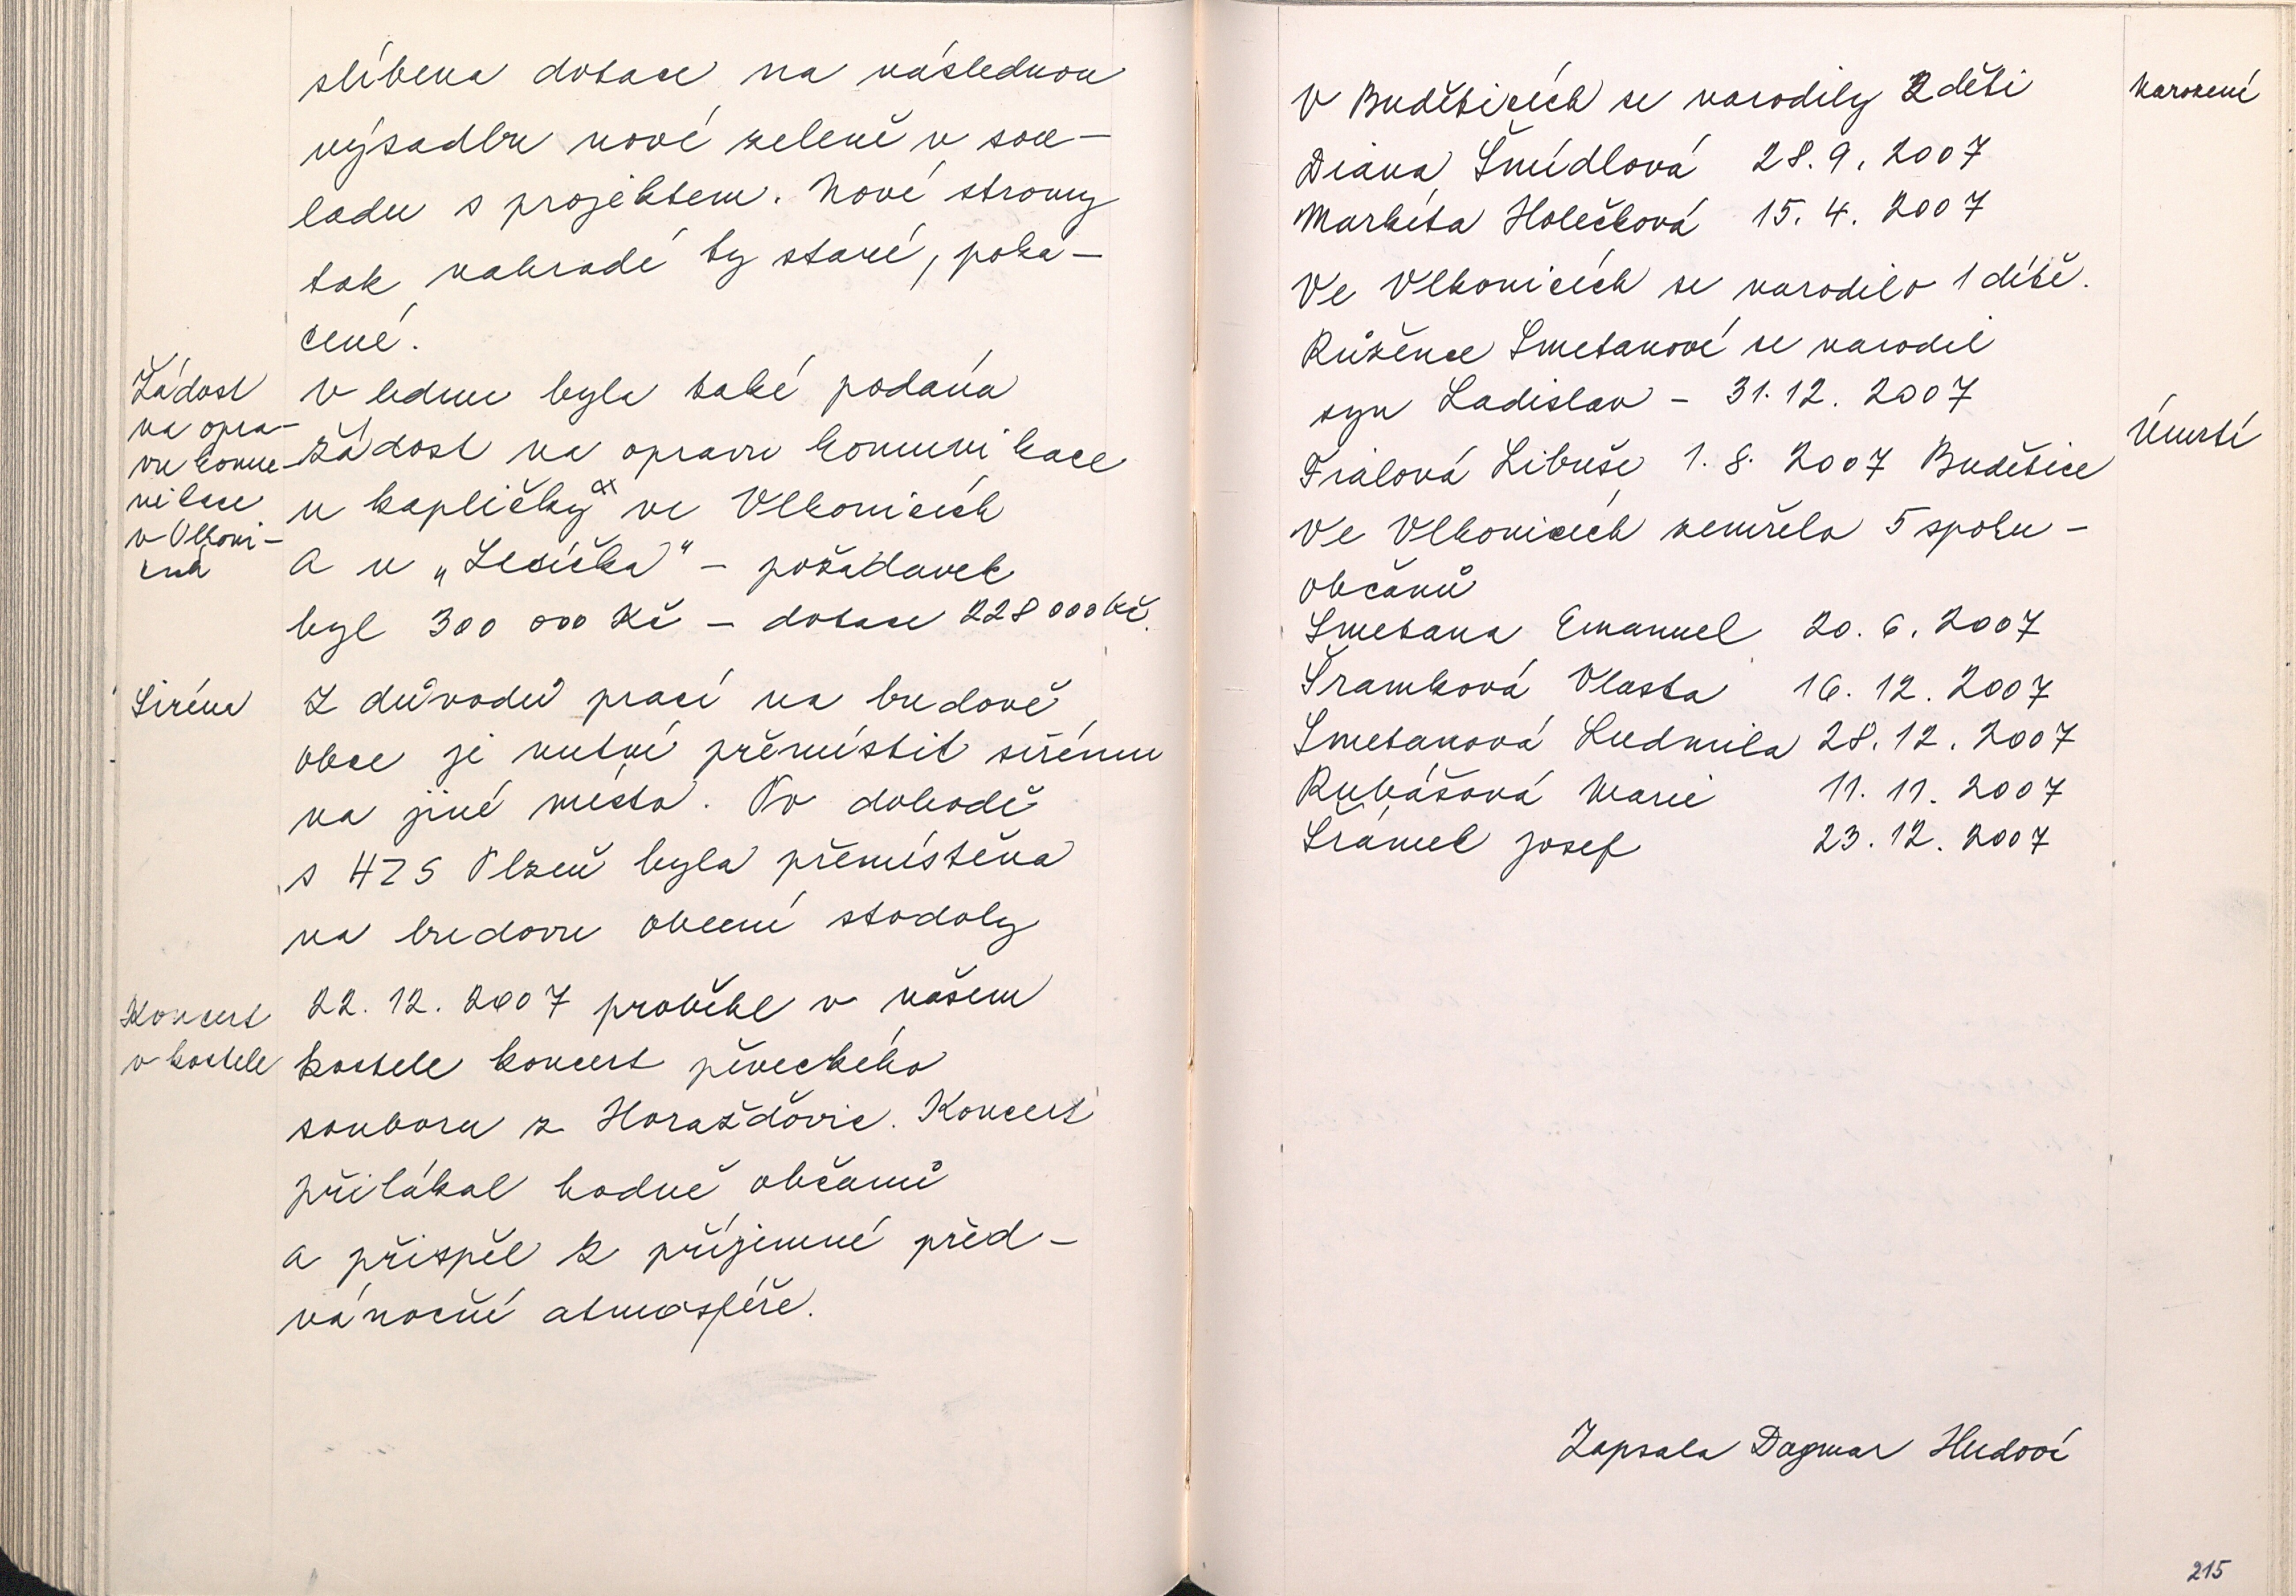 slíbena dotace na následnou
výsadbu nové zeleně v sou-
ladu s projektem. Nové stromy
tak nahradí ty staré, poká-
cené.
Žádost
na opra-
vu komu-
nikace
v Vlkoni-
cích
V lednu byla také podána
žádost na opravu komunikace
u kapličky ve Vlkonicích
a u „Ledička" – požadavek
byl 300 000 Kč – dotace 228 000 Kč.
Siréna
Z důvodů prací na budově
obce je nutné přemístit sirénu
na jiné místo. Po dohodě
s HZS Plzeň byla přemístěna
na budovu obecní stodoly
Koncert
v kostele
22. 12. 2007 proběhl v našem
kostele koncert pěveckého
souboru z Horažďovic. Koncert
přilákal hodně občanů
a přispěl k příjemné před-
vánoční atmosféře.
Narození
V Buděticích se narodily 2 děti
Diana Šmídlová 28. 9. 2007
Markéta Holečková 15. 4. 2007
Ve Vlkonicích se narodilo 1 dítě.
Růžence Smetanové se narodil
syn Ladislav – 31. 12. 2007
Úmrtí
Fialová Libuše 1. 8. 2007 Budětice
Ve Vlkonicích zemřelo 5 spolu-
občanů
Smetana Emanuel 20. 6. 2007
Šrámková Vlasta 16. 12. 2007
Smetanová Ludmila 28. 12. 2007
Rubášová Marie 11. 11. 2007
Šrámek Josef 23. 12. 2007
Zapsala Dagmar
215